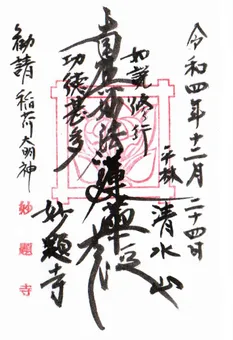 令和四年十二月二十四日
平林 清水山
如説修行
南無妙法蓮華経
功徳甚多
妙顕寺
勧請 稲荷大明神
妙顕寺